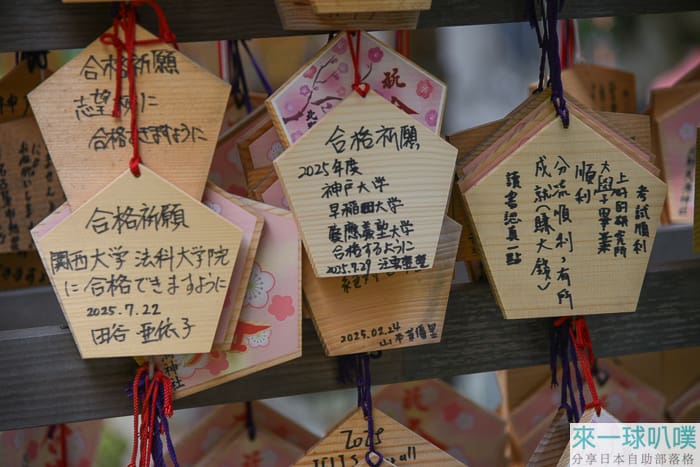 合格祈願
志望校に
合格できますように
合格祈願
関西大学 法科大学院
に合格できますように
2025.7.22
田谷 亜依子
合格祈願
2025年度
神戸大学
早稲田大学
慶應義塾大学
合格するように
2025.7.29
2025.02.24
山本
考試順利
大學畢業
上好的研究所
順利
分流順利,有所
成就(賺大錢)
讀書認真一點
2025
IELTS
all
來一球叭噗
分享日本自助部落格